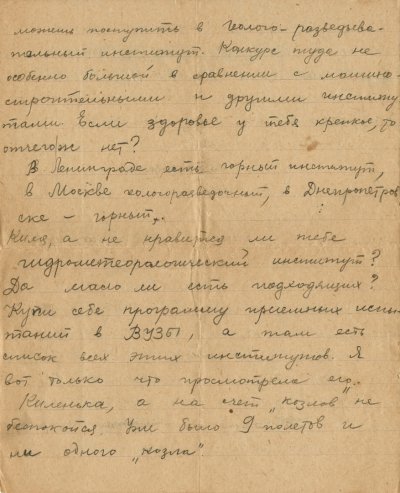 можешь поступить в геолого-разведыва-
тельный институт. Конкурс туда не
особенно большой в сравнении с машино-
строительными и другими институ-
тами. Если здоровье у тебя крепкое, то
отчего ж нет?
В Ленинграде есть горный институт,
в Москве геологоразведочный, в Днепропетров
ске – горный.
а не нравится ли тебе
гидрометеорологический институт?
Да мало ли есть подходящих?
Купи себе программу приемных испы
таний в ВУЗы, а там есть
список всех этих институтов. Я
вот только что просмотрела его.
Киленька, а на счет „козлов" не
беспокойся. Уже было 9 полетов и
ни одного „козла".